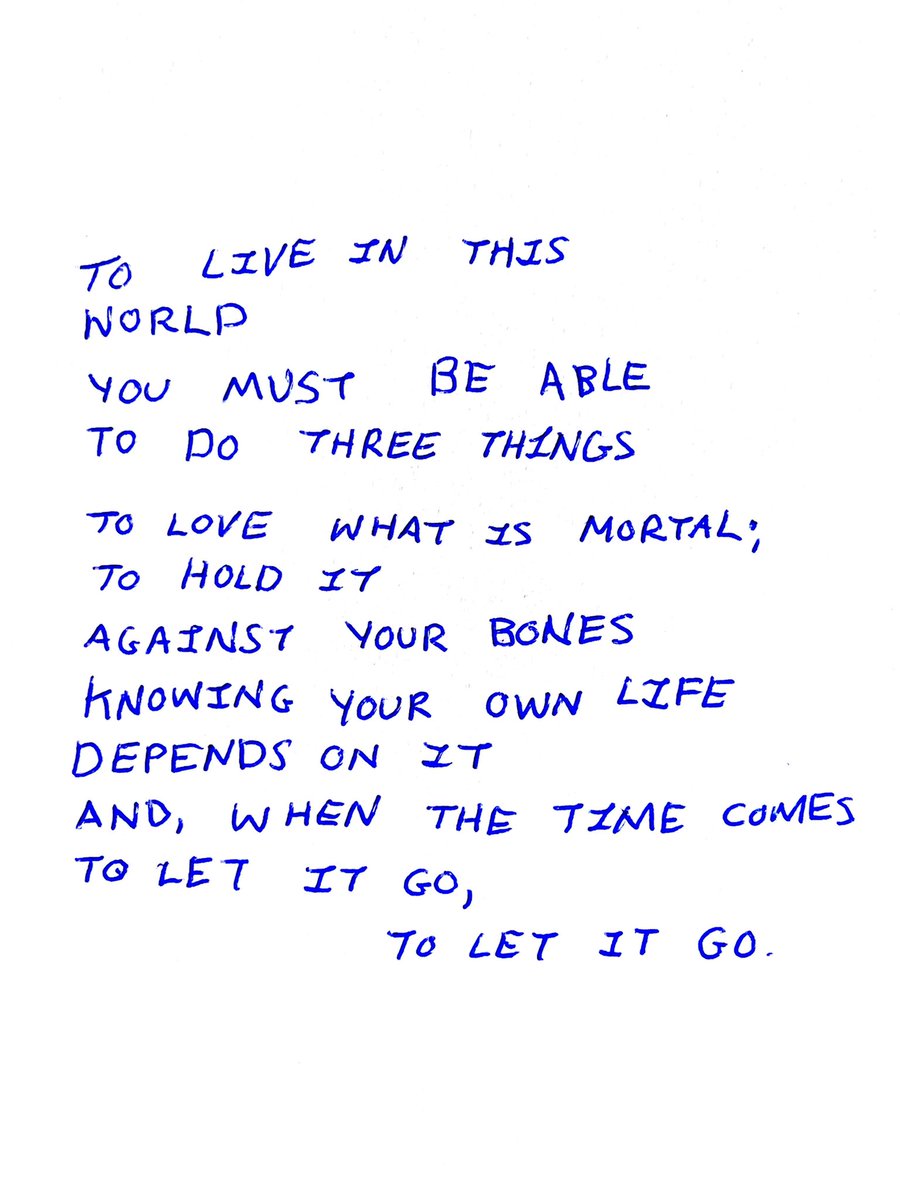 TO LIVE IN THIS
WORLD
YOU MUST BE ABLE
TO DO THREE THINGS
TO LOVE WHAT IS MORTAL;
TO HOLD IT
AGAINST YOUR BONES
KNOWING YOUR OWN LIFE
DEPENDS ON IT
AND, WHEN THE TIME COMES
TO LET IT GO,
TO LET IT GO.